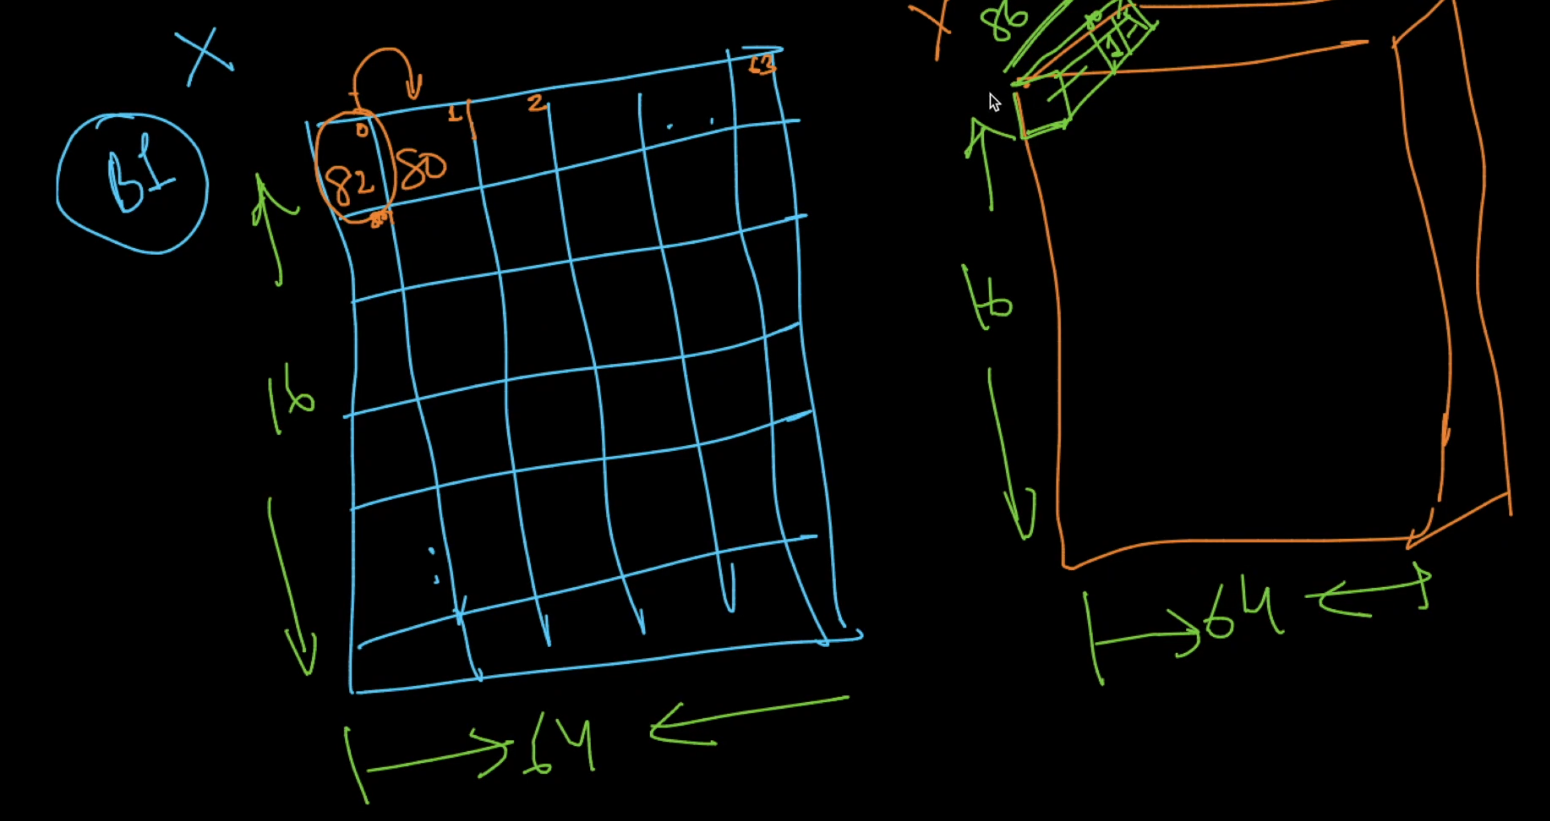 X
B1
0
1
2
. .
63
82
80
16
64
Y
86
16
64